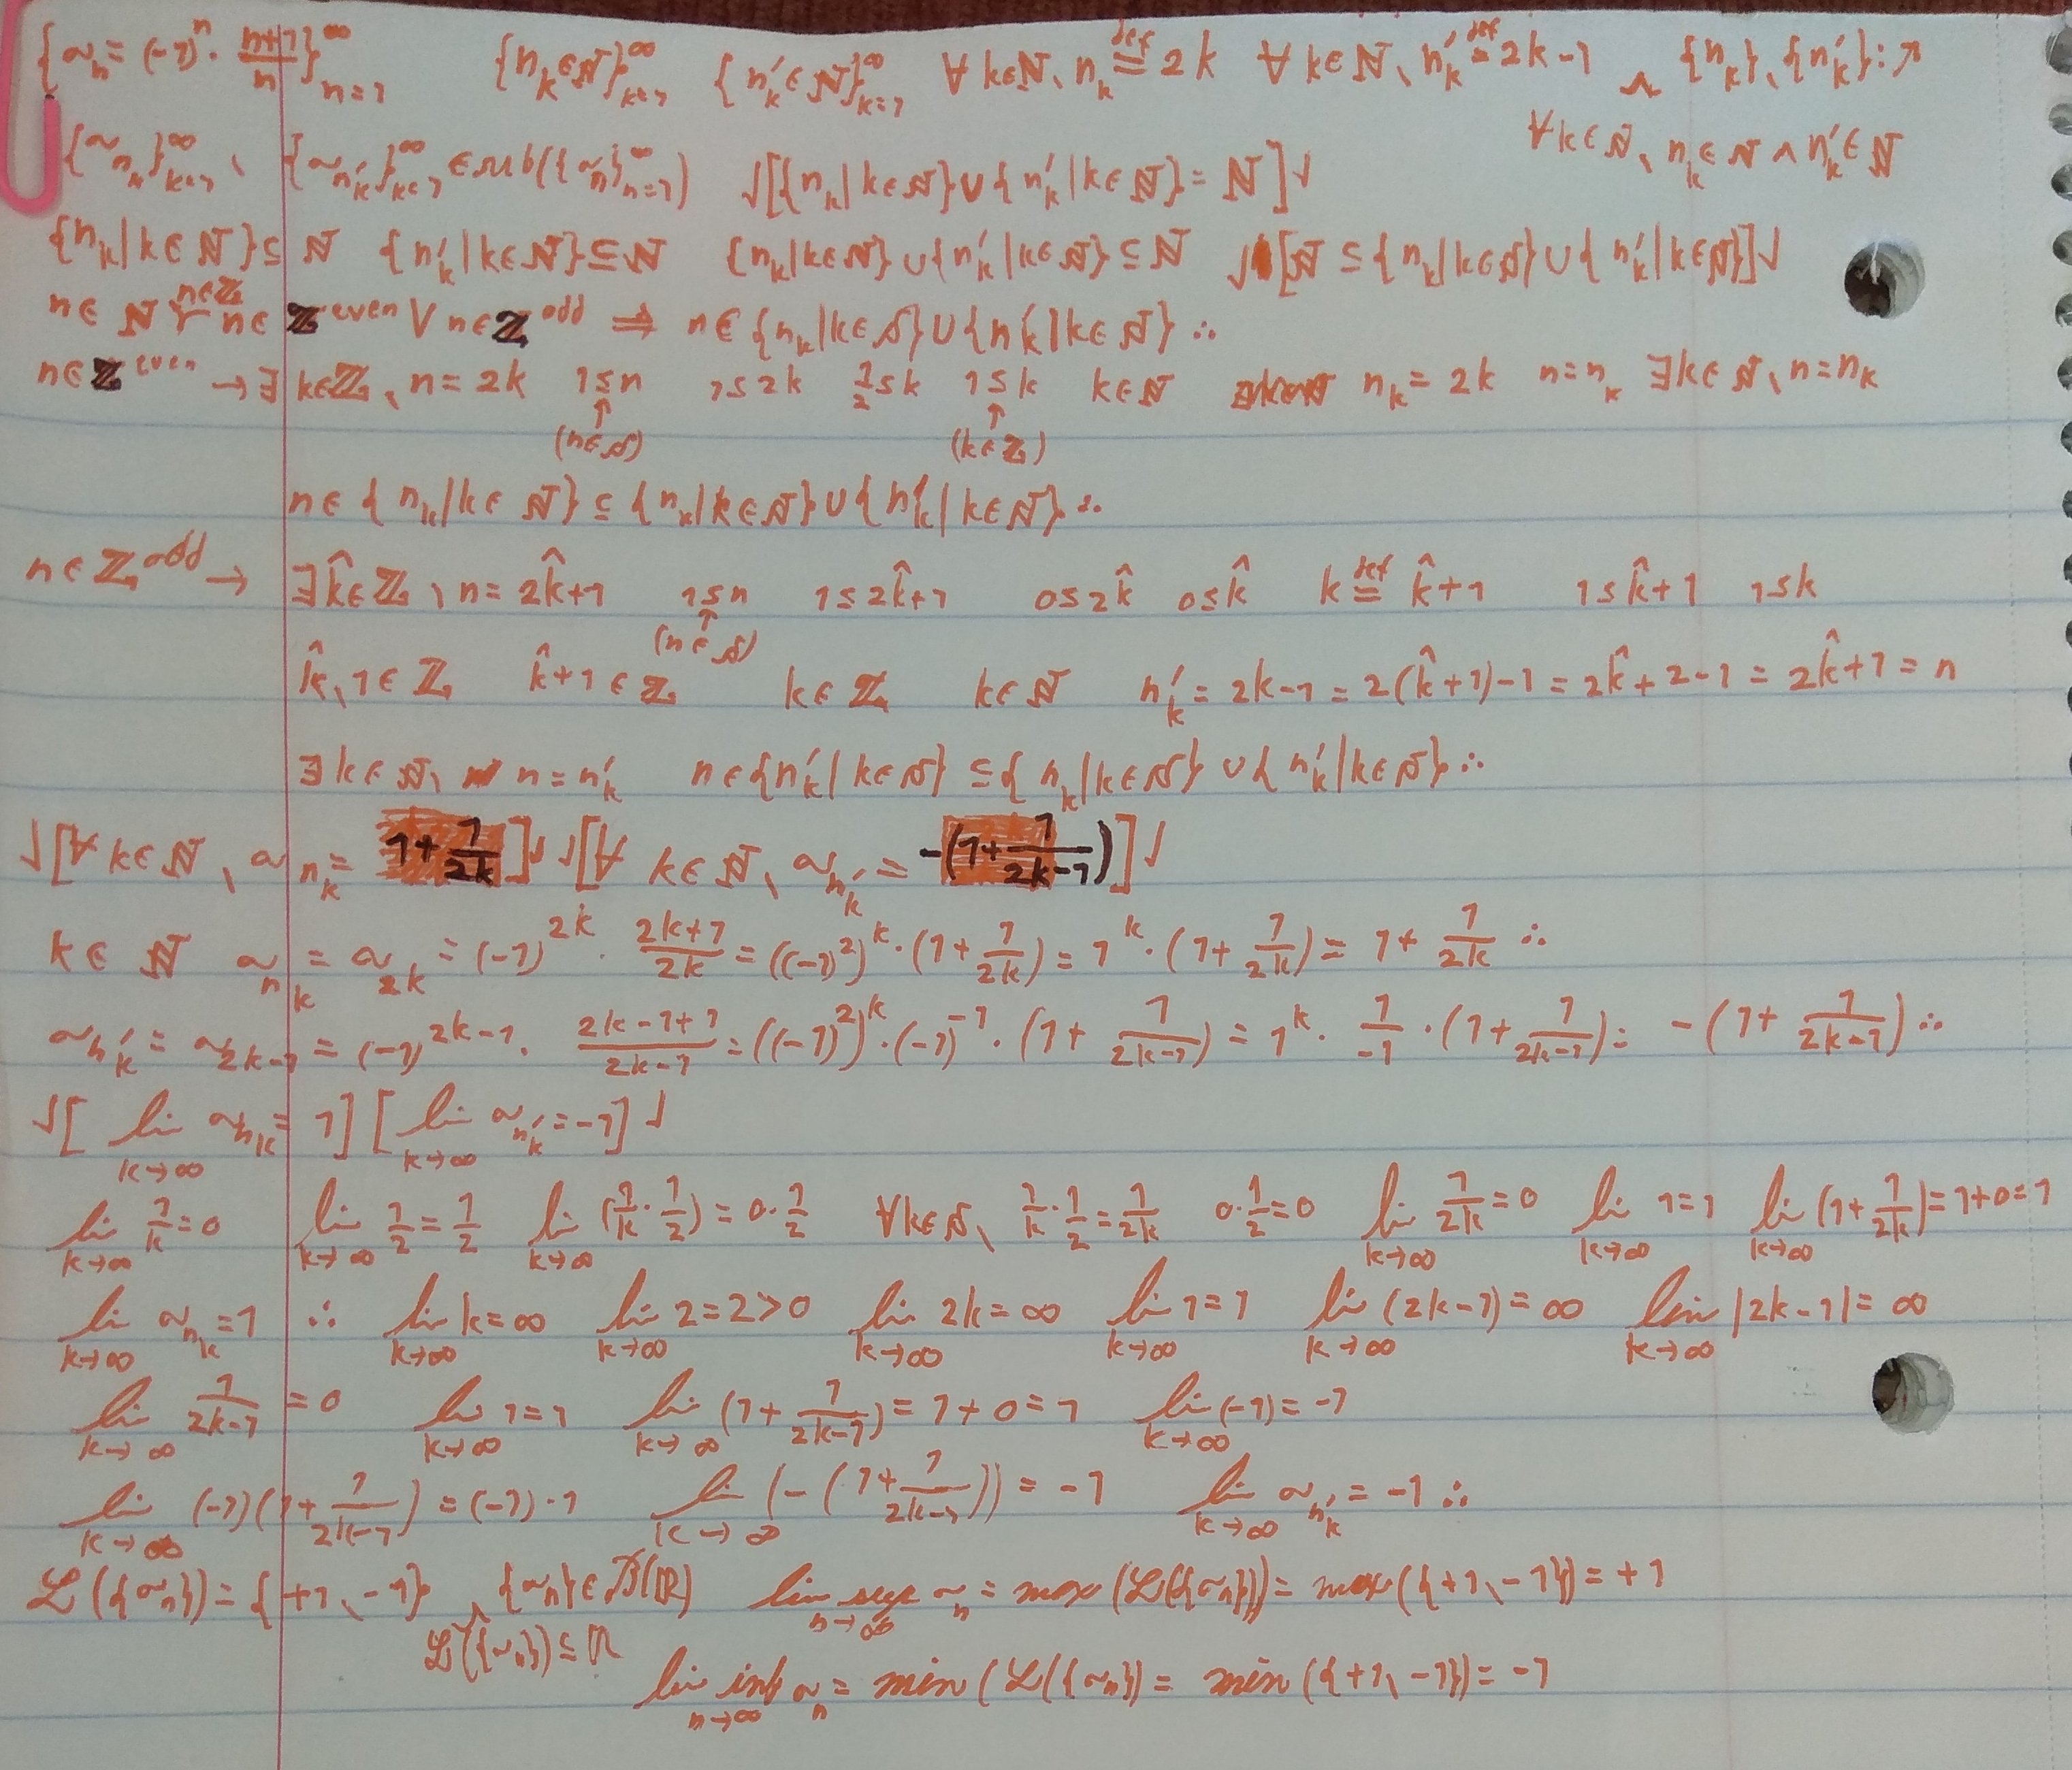 {aₙ = (-1)ⁿ · (n+1)/n}ₙ₌₁^∞ {n_k∈ℕ}_{k=1}^∞ {n'_k∈ℕ}_{k=1}^∞ ∀k∈ℕ, n_k def= 2k ∀k∈ℕ, n'_k def= 2k-1 ∧ {n_k}, {n'_k}: ↗
∀k∈ℕ, n_k∈ℕ ∧ n'_k∈ℕ
{a_{n_k}}_{k=1}^∞, {a_{n'_k}}_{k=1}^∞ ∈ sub({aₙ}_{n=1}^∞) √[{n_k|k∈ℕ}∪{n'_k|k∈ℕ} = ℕ]√
{n_k|k∈ℕ}⊆ℕ {n'_k|k∈ℕ}⊆ℕ {n_k|k∈ℕ}∪{n'_k|k∈ℕ}⊆ℕ √[ℕ⊆{n_k|k∈ℕ}∪{n'_k|k∈ℕ}]√
n∈ℤ
n∈ℕ n∈ℤ^even ∨ n∈ℤ^odd ⇒ n∈{n_k|k∈ℕ}∪{n'_k|k∈ℕ} ∴
n∈ℤ^even → ∃k∈ℤ, n=2k 1≤n 1≤2k 1/2≤k 1≤k k∈ℕ n_k=2k n=n_k ∃k∈ℕ, n=n_k
↑ ↑
(n∈ℕ) (k∈ℤ)
n∈{n_k|k∈ℕ}⊆{n_k|k∈ℕ}∪{n'_k|k∈ℕ} ∴
n∈ℤ^odd → ∃k̂∈ℤ, n=2k̂+1 1≤n 1≤2k̂+1 0≤2k̂ 0≤k̂ k def= k̂+1 1≤k̂+1 1≤k
↑
(n∈ℕ)
k̂, 1∈ℤ k̂+1∈ℤ k∈ℤ k∈ℕ n'_k = 2k-1 = 2(k̂+1)-1 = 2k̂+2-1 = 2k̂+1 = n
∃k∈ℕ, n=n'_k n∈{n'_k|k∈ℕ}⊆{n_k|k∈ℕ}∪{n'_k|k∈ℕ} ∴
√[∀k∈ℕ, a_{n_k} = 1+1/(2k)]√ √[∀k∈ℕ, a_{n'_k} = -(1+1/(2k-1))]√
k∈ℕ a_{n_k} = a_{2k} = (-1)^{2k} · (2k+1)/(2k) = ((-1)²)^k · (1+1/(2k)) = 1^k · (1+1/(2k)) = 1+1/(2k) ∴
a_{n'_k} = a_{2k-1} = (-1)^{2k-1} · (2k-1+1)/(2k-1) = ((-1)²)^k · (-1)^{-1} · (1+1/(2k-1)) = 1^k · 1/(-1) · (1+1/(2k-1)) = -(1+1/(2k-1)) ∴
√[lim_{k→∞} a_{n_k} = 1] [lim_{k→∞} a_{n'_k} = -1]√
lim_{k→∞} 1/k = 0 lim_{k→∞} 1/2 = 1/2 lim_{k→∞} (1/k · 1/2) = 0 · 1/2 ∀k∈ℕ, 1/k · 1/2 = 1/(2k) 0 · 1/2 = 0 lim_{k→∞} 1/(2k) = 0 lim_{k→∞} 1=1 lim_{k→∞} (1+1/(2k)) = 1+0 = 1
lim_{k→∞} a_{n_k} = 1 ∴ lim_{k→∞} k=∞ lim_{k→∞} 2=2>0 lim_{k→∞} 2k=∞ lim_{k→∞} 1=1 lim_{k→∞} (2k-1)=∞ lim_{k→∞} |2k-1|=∞
lim_{k→∞} 1/(2k-1) = 0 lim_{k→∞} 1=1 lim_{k→∞} (1+1/(2k-1)) = 1+0 = 1 lim_{k→∞} (-1) = -1
lim_{k→∞} (-1)(1+1/(2k-1)) = (-1)·1 lim_{k→∞} (-(1+1/(2k-1))) = -1 lim_{k→∞} a_{n'_k} = -1 ∴
ℒ({aₙ}) = {+1, -1} {aₙ}∈ℬ(ℝ) lim sup_{n→∞} aₙ = max(ℒ({aₙ})) = max({+1, -1}) = +1
ℒ({aₙ})⊆ℝ
lim inf_{n→∞} aₙ = min(ℒ({aₙ}) = min({+1, -1}) = -1